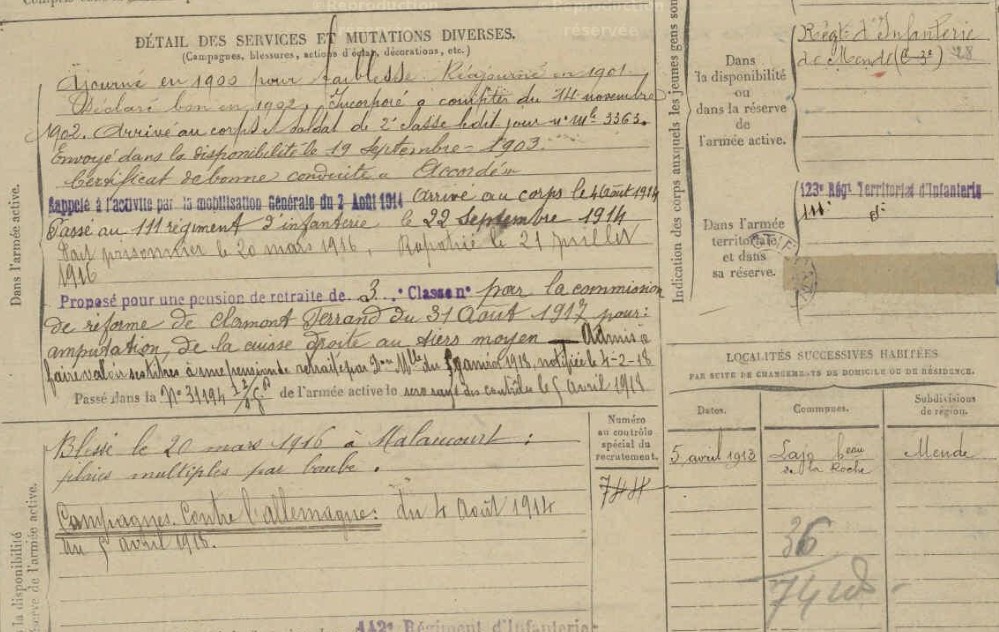 © Reproduction
réservée
DÉTAIL DES SERVICES ET MUTATIONS DIVERSES.
(Campagnes, blessures, actions d'éclat, décorations, etc.)
Ajourné en 1900 pour faiblesse. Réajourné en 1901
Déclaré bon en 1902, Incorporé à compter du 14 novembre
1902. Arrivé au corps & soldat de 2e classe ledit jour no Mle 3363.
Envoyé dans la disponibilité le 19 Septembre 1903.
Certificat de bonne conduite "Accordé"
Rappelé à l'activité par la mobilisation Générale du 2 Août 1914 Arrivé au corps le 4 Août 1914
Passé au 111 régiment d'infanterie le 22 Septembre 1914
Fait prisonnier le 20 mars 1916, Rapatrié le 21 Juillet
1916
Proposé pour une pension de retraite de 3e Classe no par la commission
de réforme de Clermont Ferrand du 31 Août 1917 pour:
amputation de la cuisse droite au tiers moyen — Admis à
faire valoir ses titres à une pension de retraite par Don Mlle du janvier 1918, notifiée le 4-2-18
Passé dans la No 31194 de l'armée active le sera rayé des contrôles le 5 Avril 1918
Dans l'armée active.
Blessé le 20 mars 1916 à Malancourt :
plaies multiples par bombe.
Campagnes. Contre l'allemagne: du 4 Août 1914
au 5 avril 1918.
la disponibilité
réserve de l'armée active.
Numéro
au contrôle
spécial du
recrutement.
744
142e Régiment d'Infanterie
Indication des corps auxquels les jeunes gens sont
Dans
la disponibilité
ou
dans la réserve
de
l'armée active.
Régt d'Infanterie
de Mende (C-3e) 28
Dans l'armée
territoriale
et dans
sa réserve.
123e Régt Territorial d'Infanterie
LOCALITÉS SUCCESSIVES HABITÉES
PAR SUITE DE CHANGEMENTS DE DOMICILE OU DE RÉSIDENCE.
Dates.
Communes.
Subdivisions
de région.
5 avril 1913
Lajo beau
de la Roche
Mende
36
74